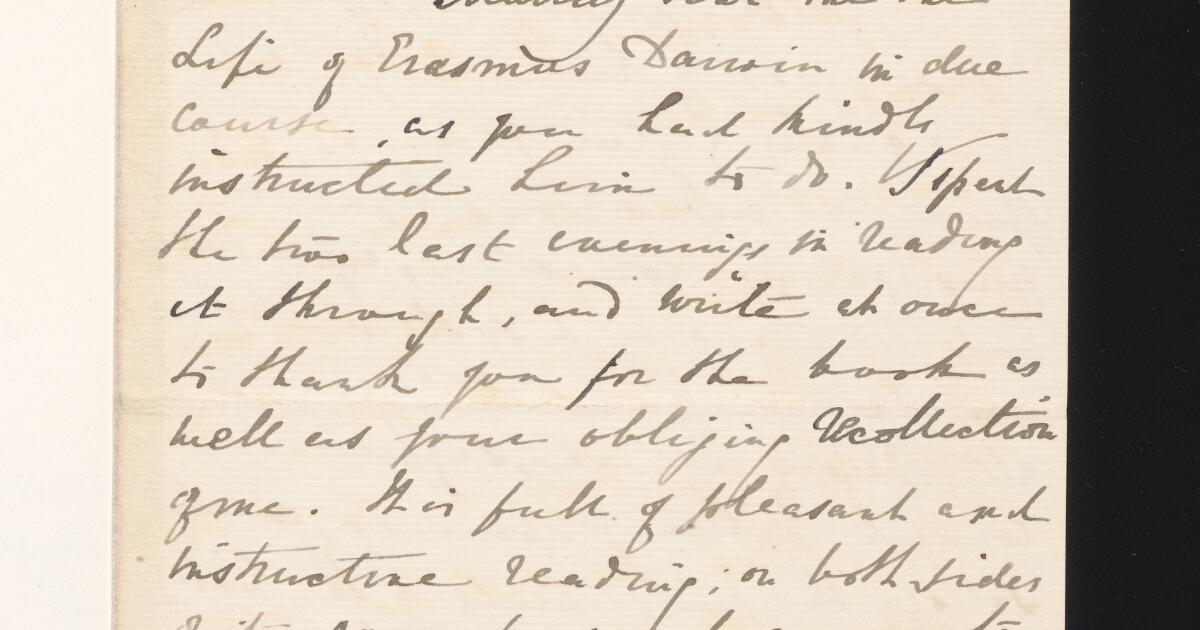 Life of Erasmus Darwin in due
course, as you had kindly
instructed him to do. I spent
the two last evenings in reading
it through, and write at once
to thank you for the book as
well as your obliging recollection
of me. It is full of pleasant and
instructive reading; on both sides